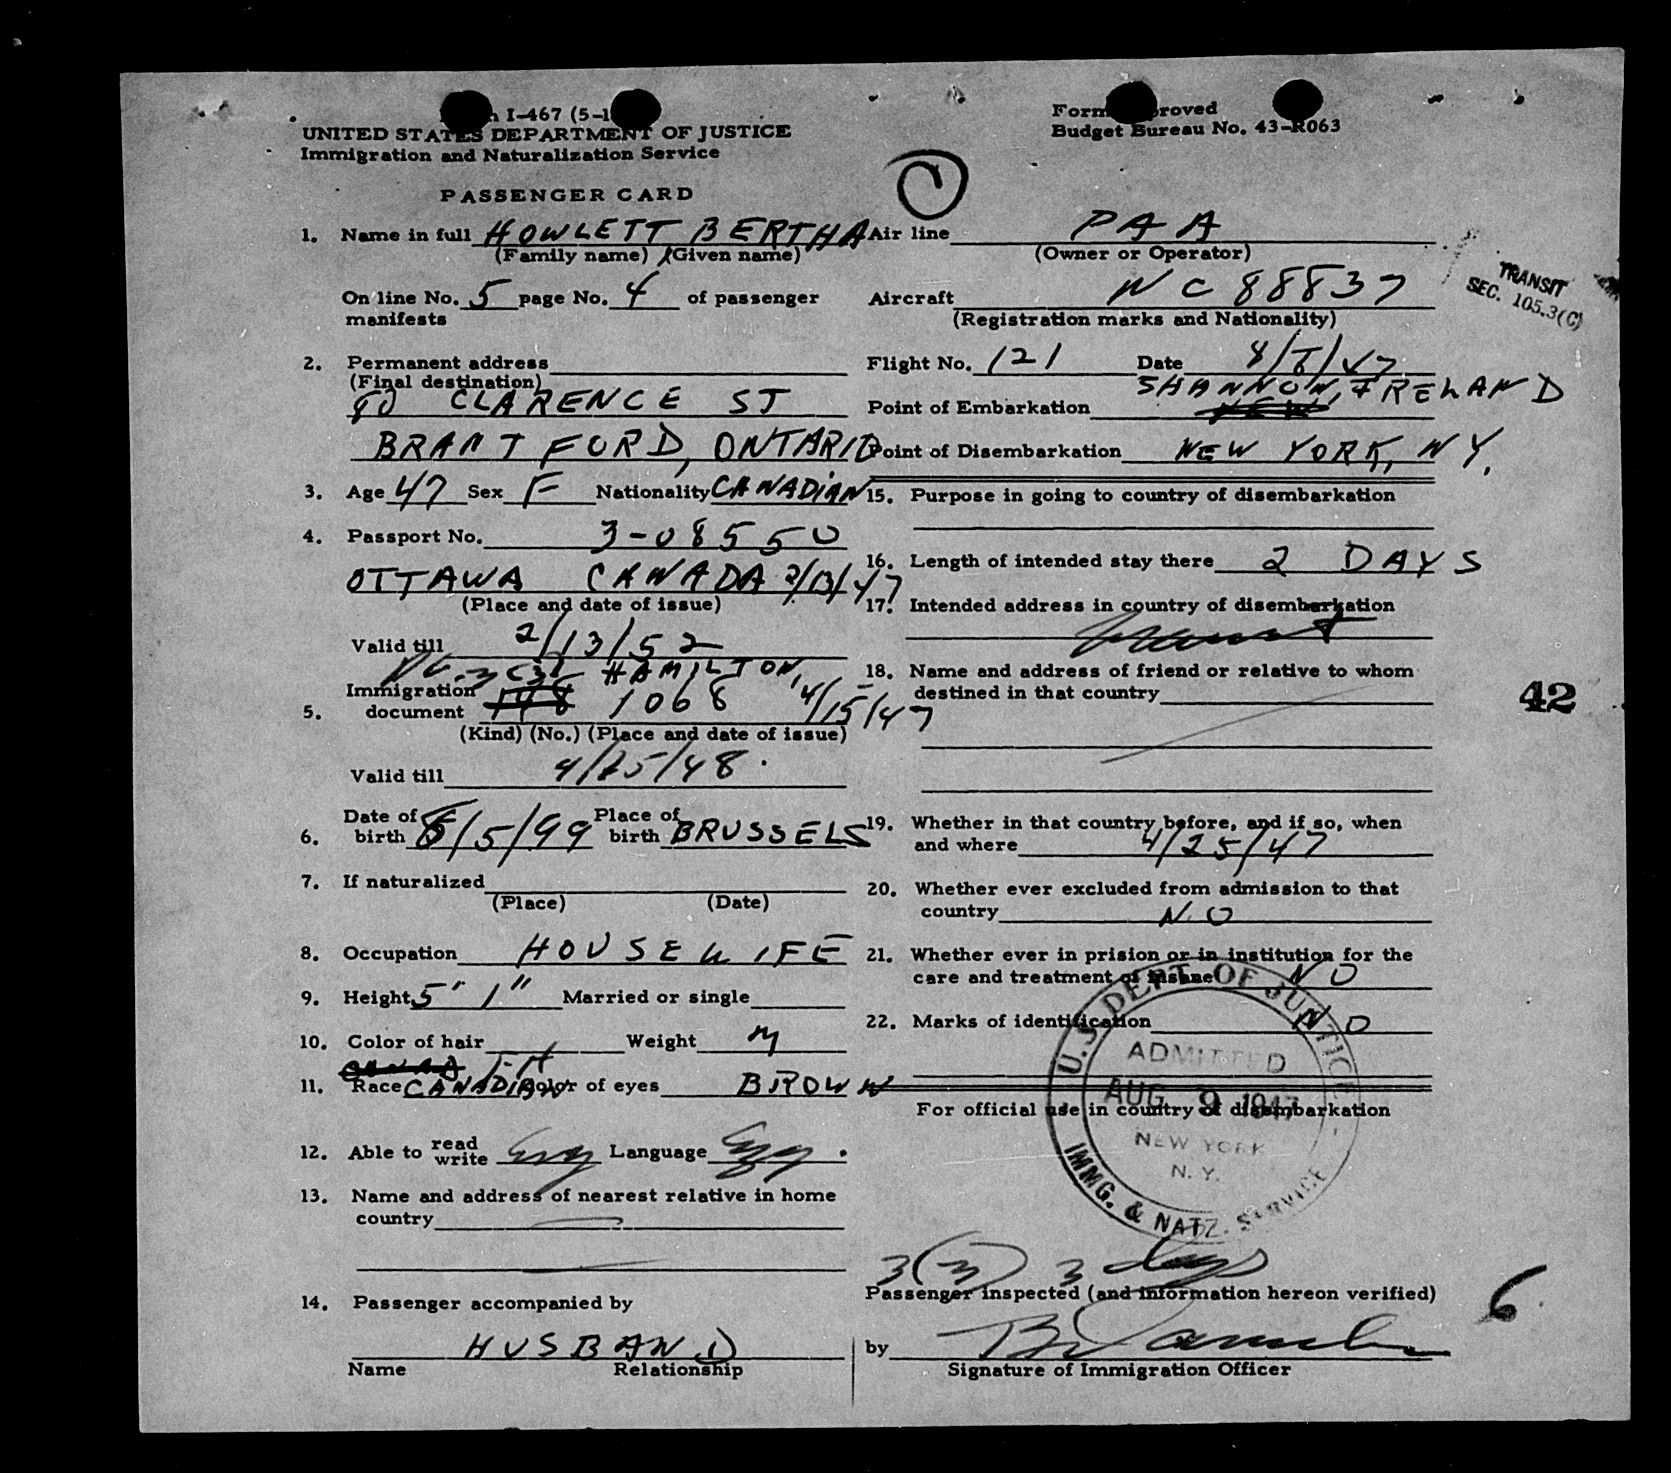 I-467 (5-1
UNITED STATES DEPARTMENT OF JUSTICE
Immigration and Naturalization Service
Form roved
Budget Bureau No. 43-R063
PASSENGER CARD
1. Name in full HOWLETT BERTHA
(Family name) (Given name)
On line No. 5 page No. 4 of passenger
manifests
2. Permanent address
(Final destination)
CLARENCE ST
BRANTFORD, ONTARIO
3. Age 47 Sex F Nationality CANADIAN
4. Passport No. 3-08550
OTTAWA CANADA 2/13/47
(Place and date of issue)
Valid till 2/13/52
HAMILTON,
5. Immigration document 1068 4/15/47
(Kind) (No.) (Place and date of issue)
Valid till 4/15/48.
6. Date of birth /5/99 Place of birth BRUSSELS
7. If naturalized
(Place) (Date)
8. Occupation HOUSEWIFE
9. Height 5" 1" Married or single
10. Color of hair Weight M
11. Race CANADIAN Color of eyes BROWN
12. Able to read write Eng Language Eng.
13. Name and address of nearest relative in home
country
14. Passenger accompanied by
HUSBAND
Name Relationship
Air line PAA
(Owner or Operator)
Aircraft NC 88837
(Registration marks and Nationality)
TRANSIT
SEC. 105.3(C)
Flight No. 121 Date 8/8/47
SHANNON, IRELAND
Point of Embarkation NEW
Point of Disembarkation NEW YORK, NY.
15. Purpose in going to country of disembarkation
16. Length of intended stay there 2 DAYS
17. Intended address in country of disembarkation
Transit
18. Name and address of friend or relative to whom
destined in that country
42
19. Whether in that country before, and if so, when
and where 4/25/47
20. Whether ever excluded from admission to that
country NO
21. Whether ever in prision or in institution for the
care and treatment of insane NO
22. Marks of identification NO
For official use in country of disembarkation
U.S. DEPT. OF JUSTICE
ADMITTED
AUG 9 1947
NEW YORK
N.Y.
IMMG. & NATZ. SERVICE
3 (m) 3 days
Passenger inspected (and information hereon verified)
6
by
Signature of Immigration Officer